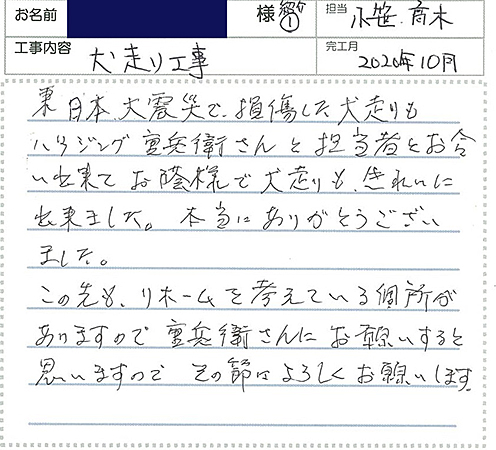 お名前 様 紹介 1 担当 小笹.高木
工事内容 犬走り工事 完工月 2020年10月
東日本大震災で、損傷した犬走りも
ハウジング重兵衛さんと担当者とお会
い出来てお陰様で犬走りも、きれいに
出来ました。本当にありがとうござい
ました。
この先も、リホームを考えている個所が
ありますので重兵衛さんにお願いすると
思いますので その節はよろしくお願いします